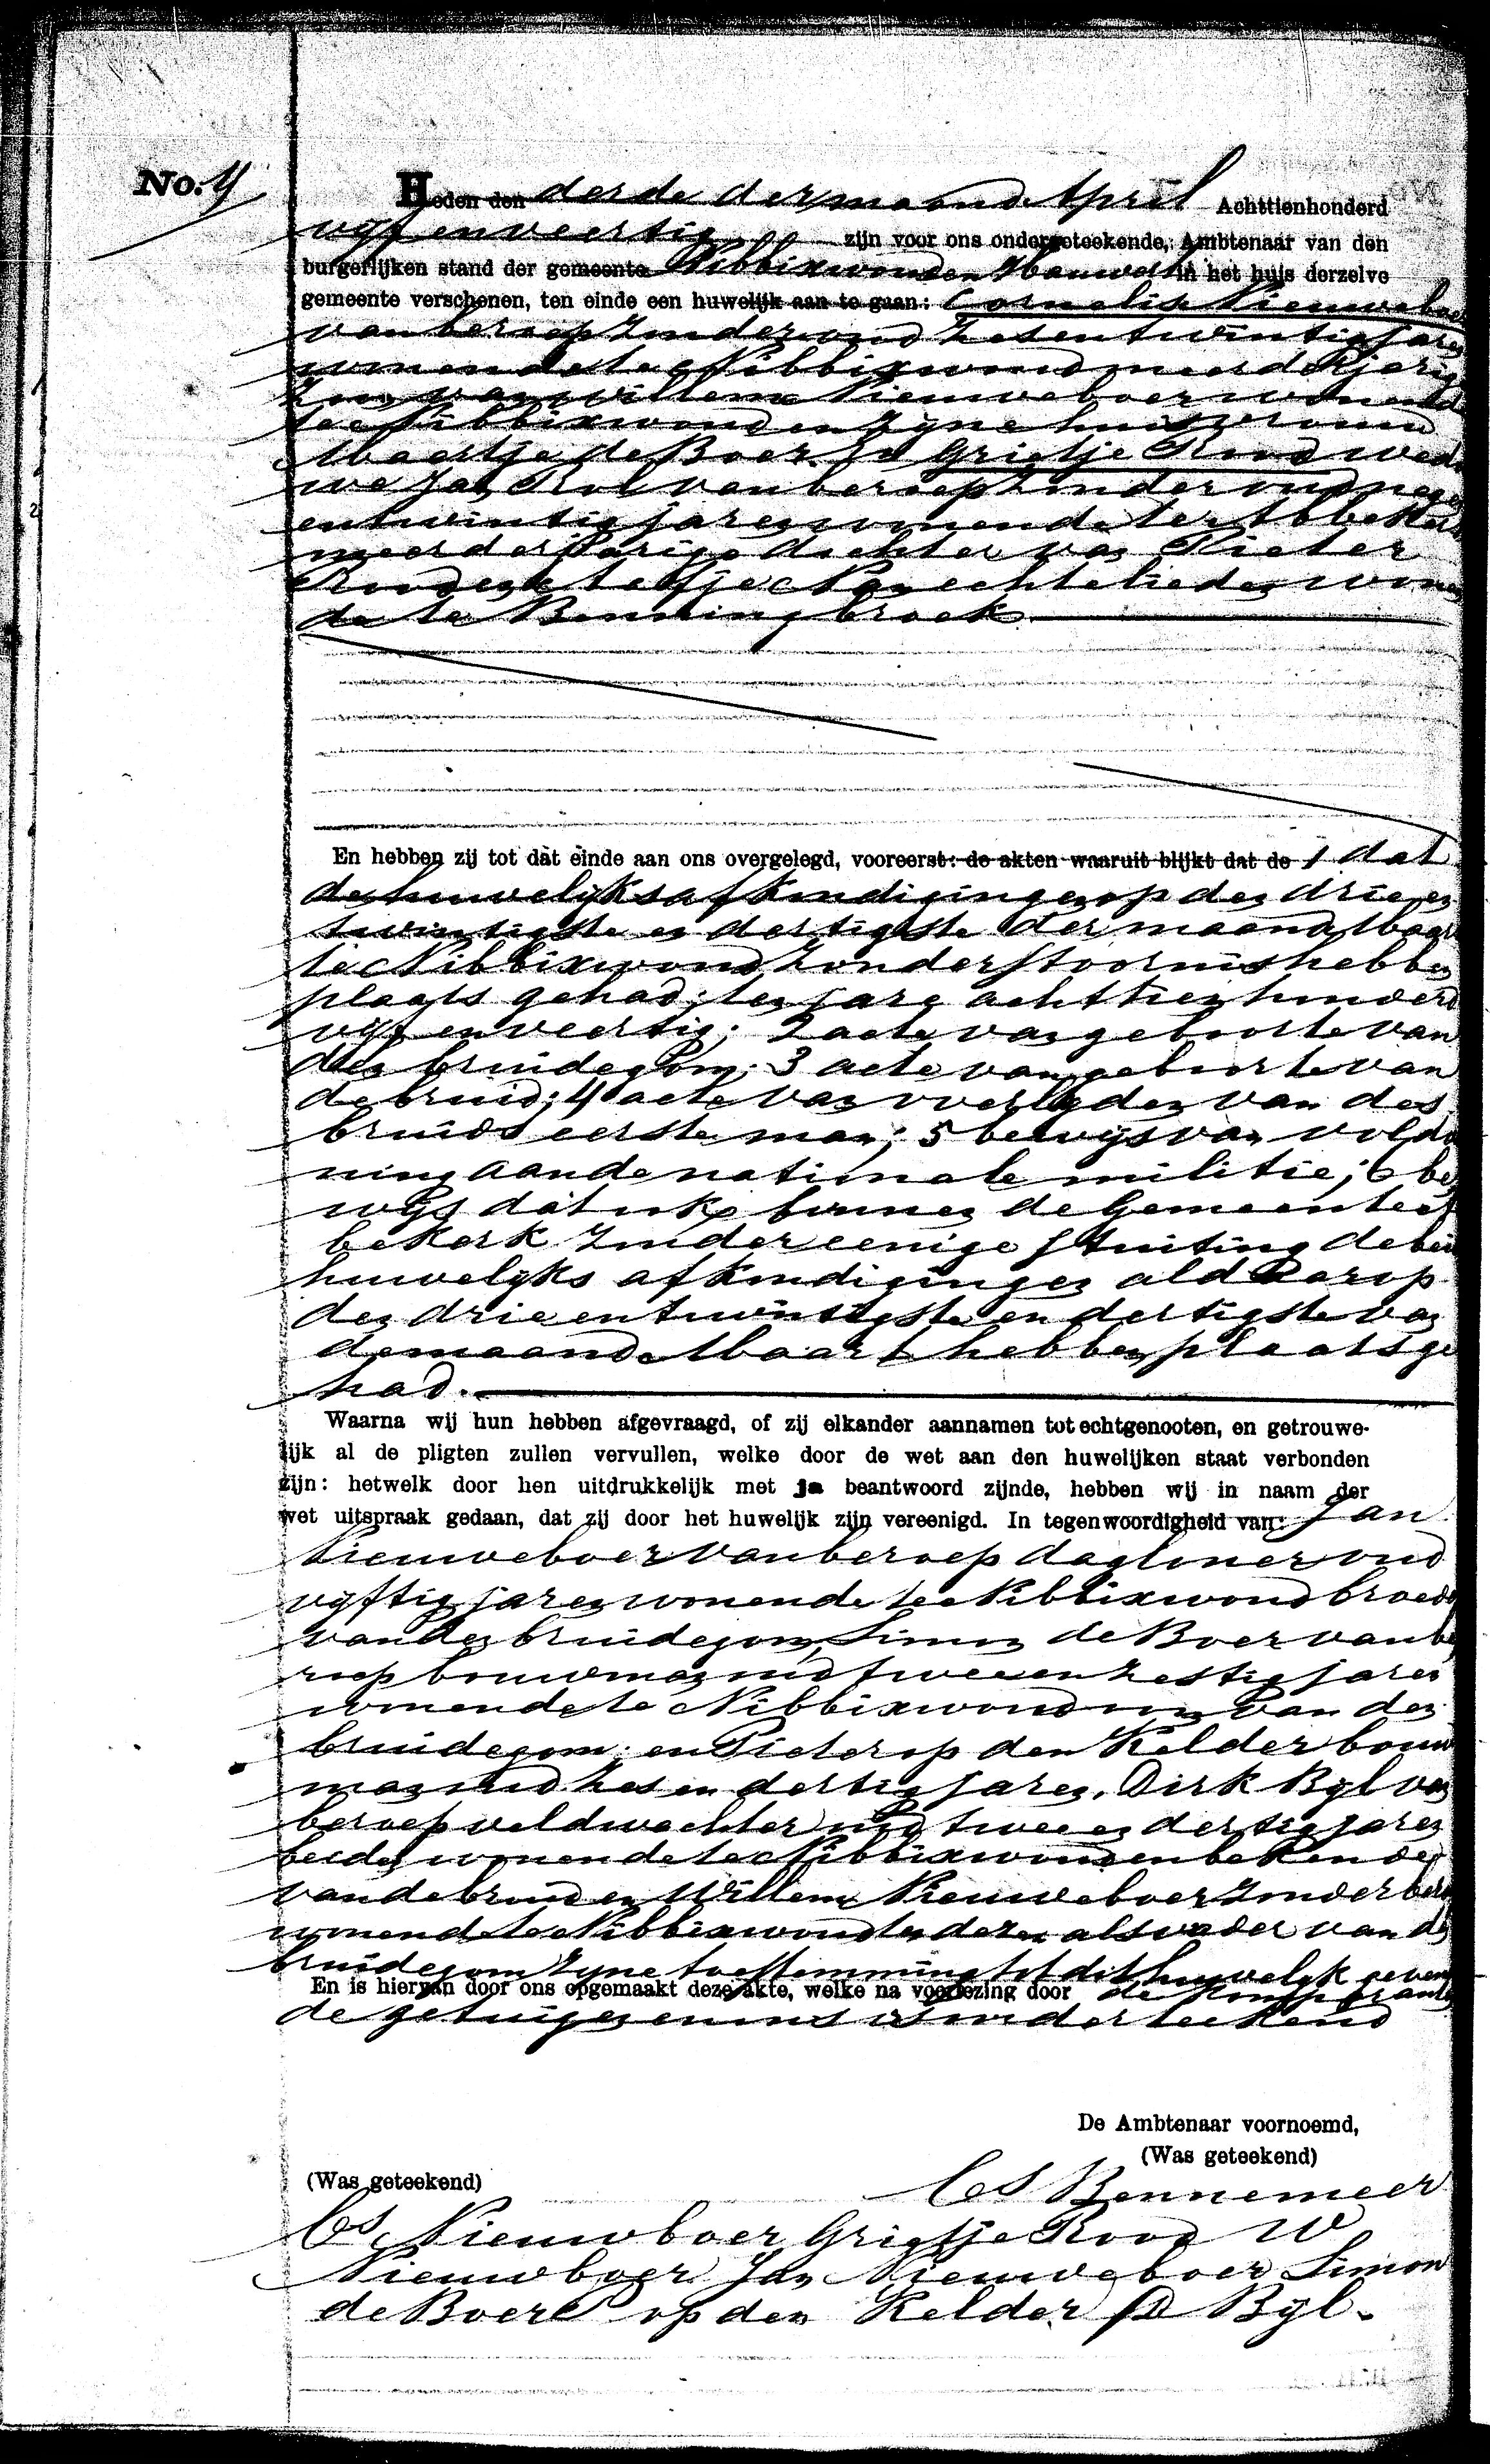 No. 4
Heden den derde der maand April Achttienhonderd
vijf en veertig zijn voor ons ondergeteekende, Ambtenaar van den
burgerlijken stand der gemeente Nibbixwoud en Hauwert in het huis derzelve
gemeente verschenen, ten einde een huwelijk aan te gaan: Cornelis Nieuweboer
van beroep zonder oud zes en twintig jaren
wonende te Nibbixwoud meerderjarige
zoon van Willem Nieuweboer wonende
te Nibbixwoud en zijne huisvrouw
Maartje de Boer en Grietje Rood wedu
we Jan Rol van beroep zonder oud negen
en twintig jaren wonende te Abbekerk
meerderjarige dochter van Pieter
Rood en echtelieden wonen
de te Benningbroek
En hebben zij tot dat einde aan ons overgelegd, vooreerst: de akten waaruit blijkt dat de 1 dat
de huwelijksafkondigingen op den drie en
twintigste en dertigste der maand Maart
te Nibbixwoud zonder stoornis hebben
plaats gehad; ten jare achttien honderd
vijf en veertig; 2 acte van geboorte van
den bruidegom; 3 acte van geboorte van
de bruid; 4 acte van overlyden van des
bruids eerste man; 5 bewijs van voldoe
ning aan de nationale militie; 6 be
wijs dat ook binnen de Gemeente Ab
bekerk zonder eenige stuiting de beide
huwelijks afkondigingen aldaar op
den drie en twintigste en dertigste van
de maand Maart hebben plaats ge
had.
Waarna wij hun hebben afgevraagd, of zij elkander aannamen tot echtgenooten, en getrouwe-
lijk al de pligten zullen vervullen, welke door de wet aan den huwelijken staat verbonden
zijn: hetwelk door hen uitdrukkelijk met ja beantwoord zijnde, hebben wij in naam der
wet uitspraak gedaan, dat zij door het huwelijk zijn vereenigd. In tegenwoordigheid van: Jan
Nieuweboer van beroep dagloner oud
vijftig jaren wonende te Nibbixwoud broeder
van den bruidegom, Simon de Boer van be
roep bouwman oud twee en zestig jaren
wonende te Nibbixwoud oom van den
bruidegom; en Pieter op den Kelder bouw
man oud zes en dertig jaren, Dirk Bijl van
beroep veldwachter oud twee en dertig jaren
beiden wonende te Nibbixwoud en bekenden
van de bruid en Willem Nieuweboer zonder beroep
wonende te Nibbixwoud te dezen als vader van den
bruidegom zijne toestemming tot dit huwelijk gevend
En is hiervan door ons opgemaakt deze akte, welke na voorlezing door de komparanten
de getuigen en ons is onderteekend
De Ambtenaar voornoemd,
(Was geteekend)
(Was geteekend)
Cs Bennemeer
Cs Nieuwboer Grietje Rood W
Nieuwboer Jan Nieuweboer Simon
de Boer P op den Kelder D Bijl.